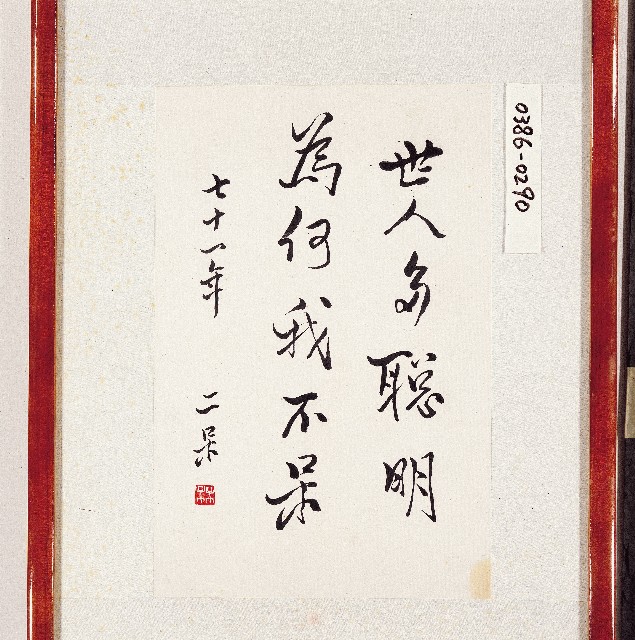 世人多聰明
為何我不呆
七十一年
二呆
0386-0290